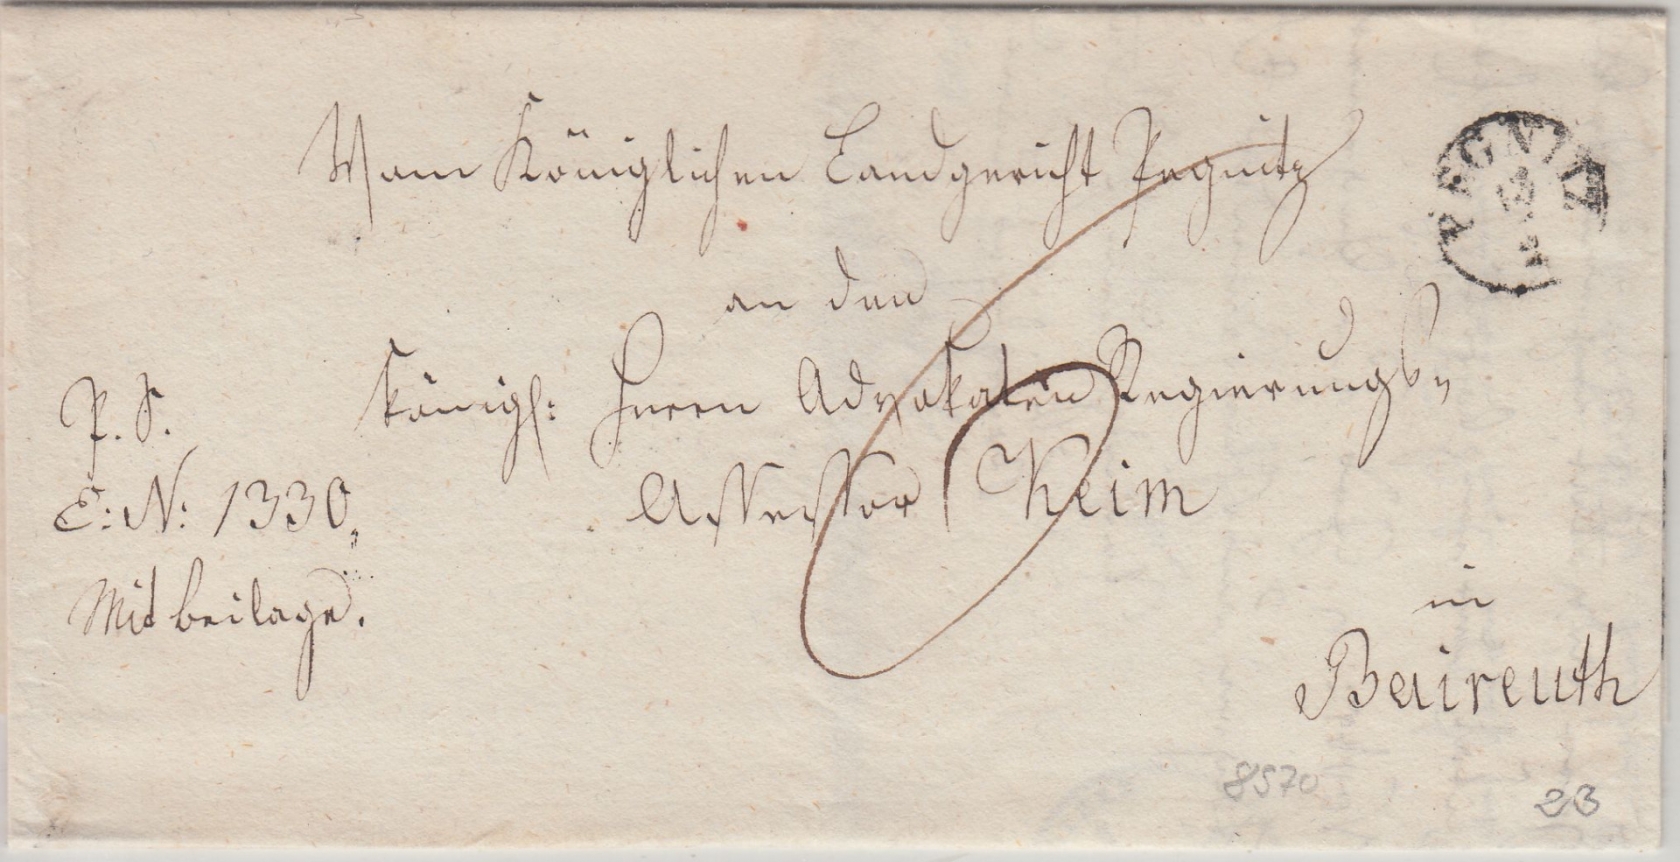 Vom Königlichen Landgericht Pegnitz
PEGNITZ
an den
königl: Herrn Advokaten Regierungs-
Assessor Keim
P. S.
E: N: 1330,
Mit beilage.
in
Baireuth
8570
23